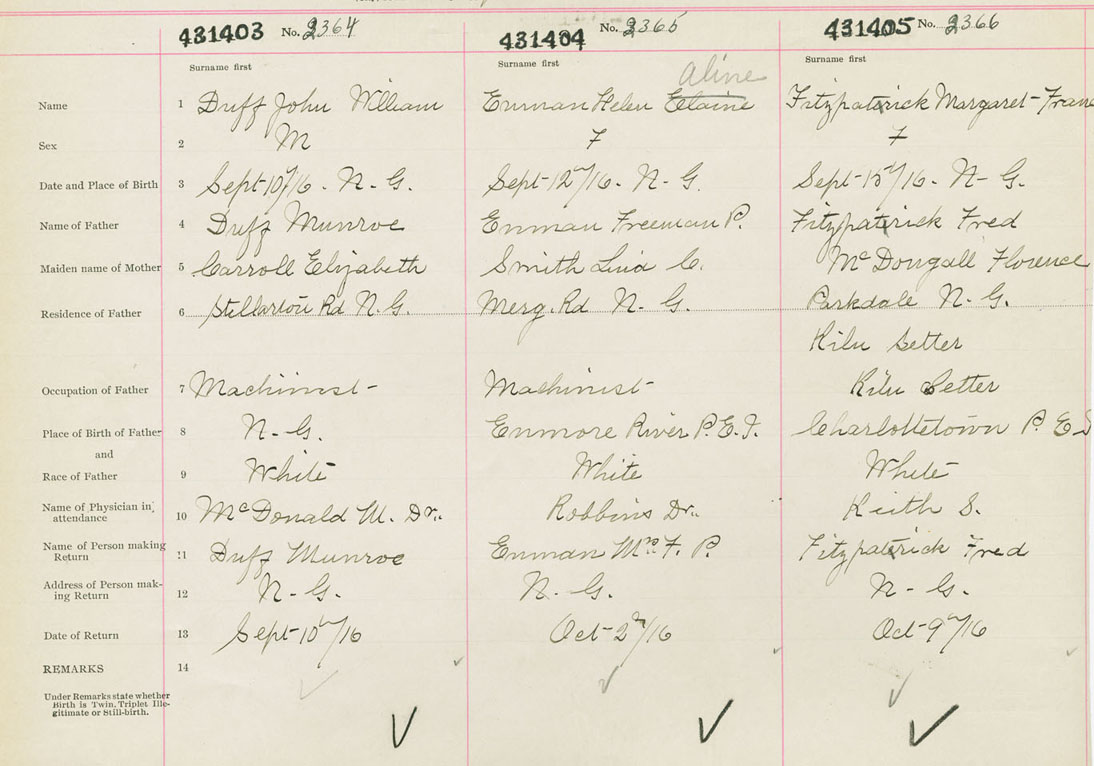 431403 No. 2364
431404 No. 2365
431405 No. 2366
Surname first
Surname first
Surname first
Aline
Name 1 Duff John William Enman Helen Elaine Fitzpatrick Margaret-Fran
Sex 2 M F F
Date and Place of Birth 3 Sept-10th/16. N-G. Sept-12th/16- N-G. Sept-15th/16- N-G.
Name of Father 4 Duff Munroe Enman Freeman P. Fitzpatrick Fred
Maiden name of Mother 5 Carroll Elizabeth Smith C. McDougall Florence
Residence of Father 6 Stellarton Rd N.G. Merg. Rd N-G. Parkdale N-G.
Kiln Setter
Occupation of Father 7 Machinist- Machinist- Kiln Setter
Place of Birth of Father 8 N-G. Enmore River P.E.I. Charlottetown P.E.I
and
Race of Father 9 White White White
Name of Physician in attendance 10 McDonald M. Dr. Robbins Dr. Keith S.
Name of Person making Return 11 Duff Munroe Enman Mrs. F. P. Fitzpatrick Fred
Address of Person making Return 12 N-G. N-G. N-G.
Date of Return 13 Sept-10th/16 Oct-2nd/16 Oct-9th/16
REMARKS 14
Under Remarks state whether
Birth is Twin, Triplet Ille-
gitimate or Still-birth.